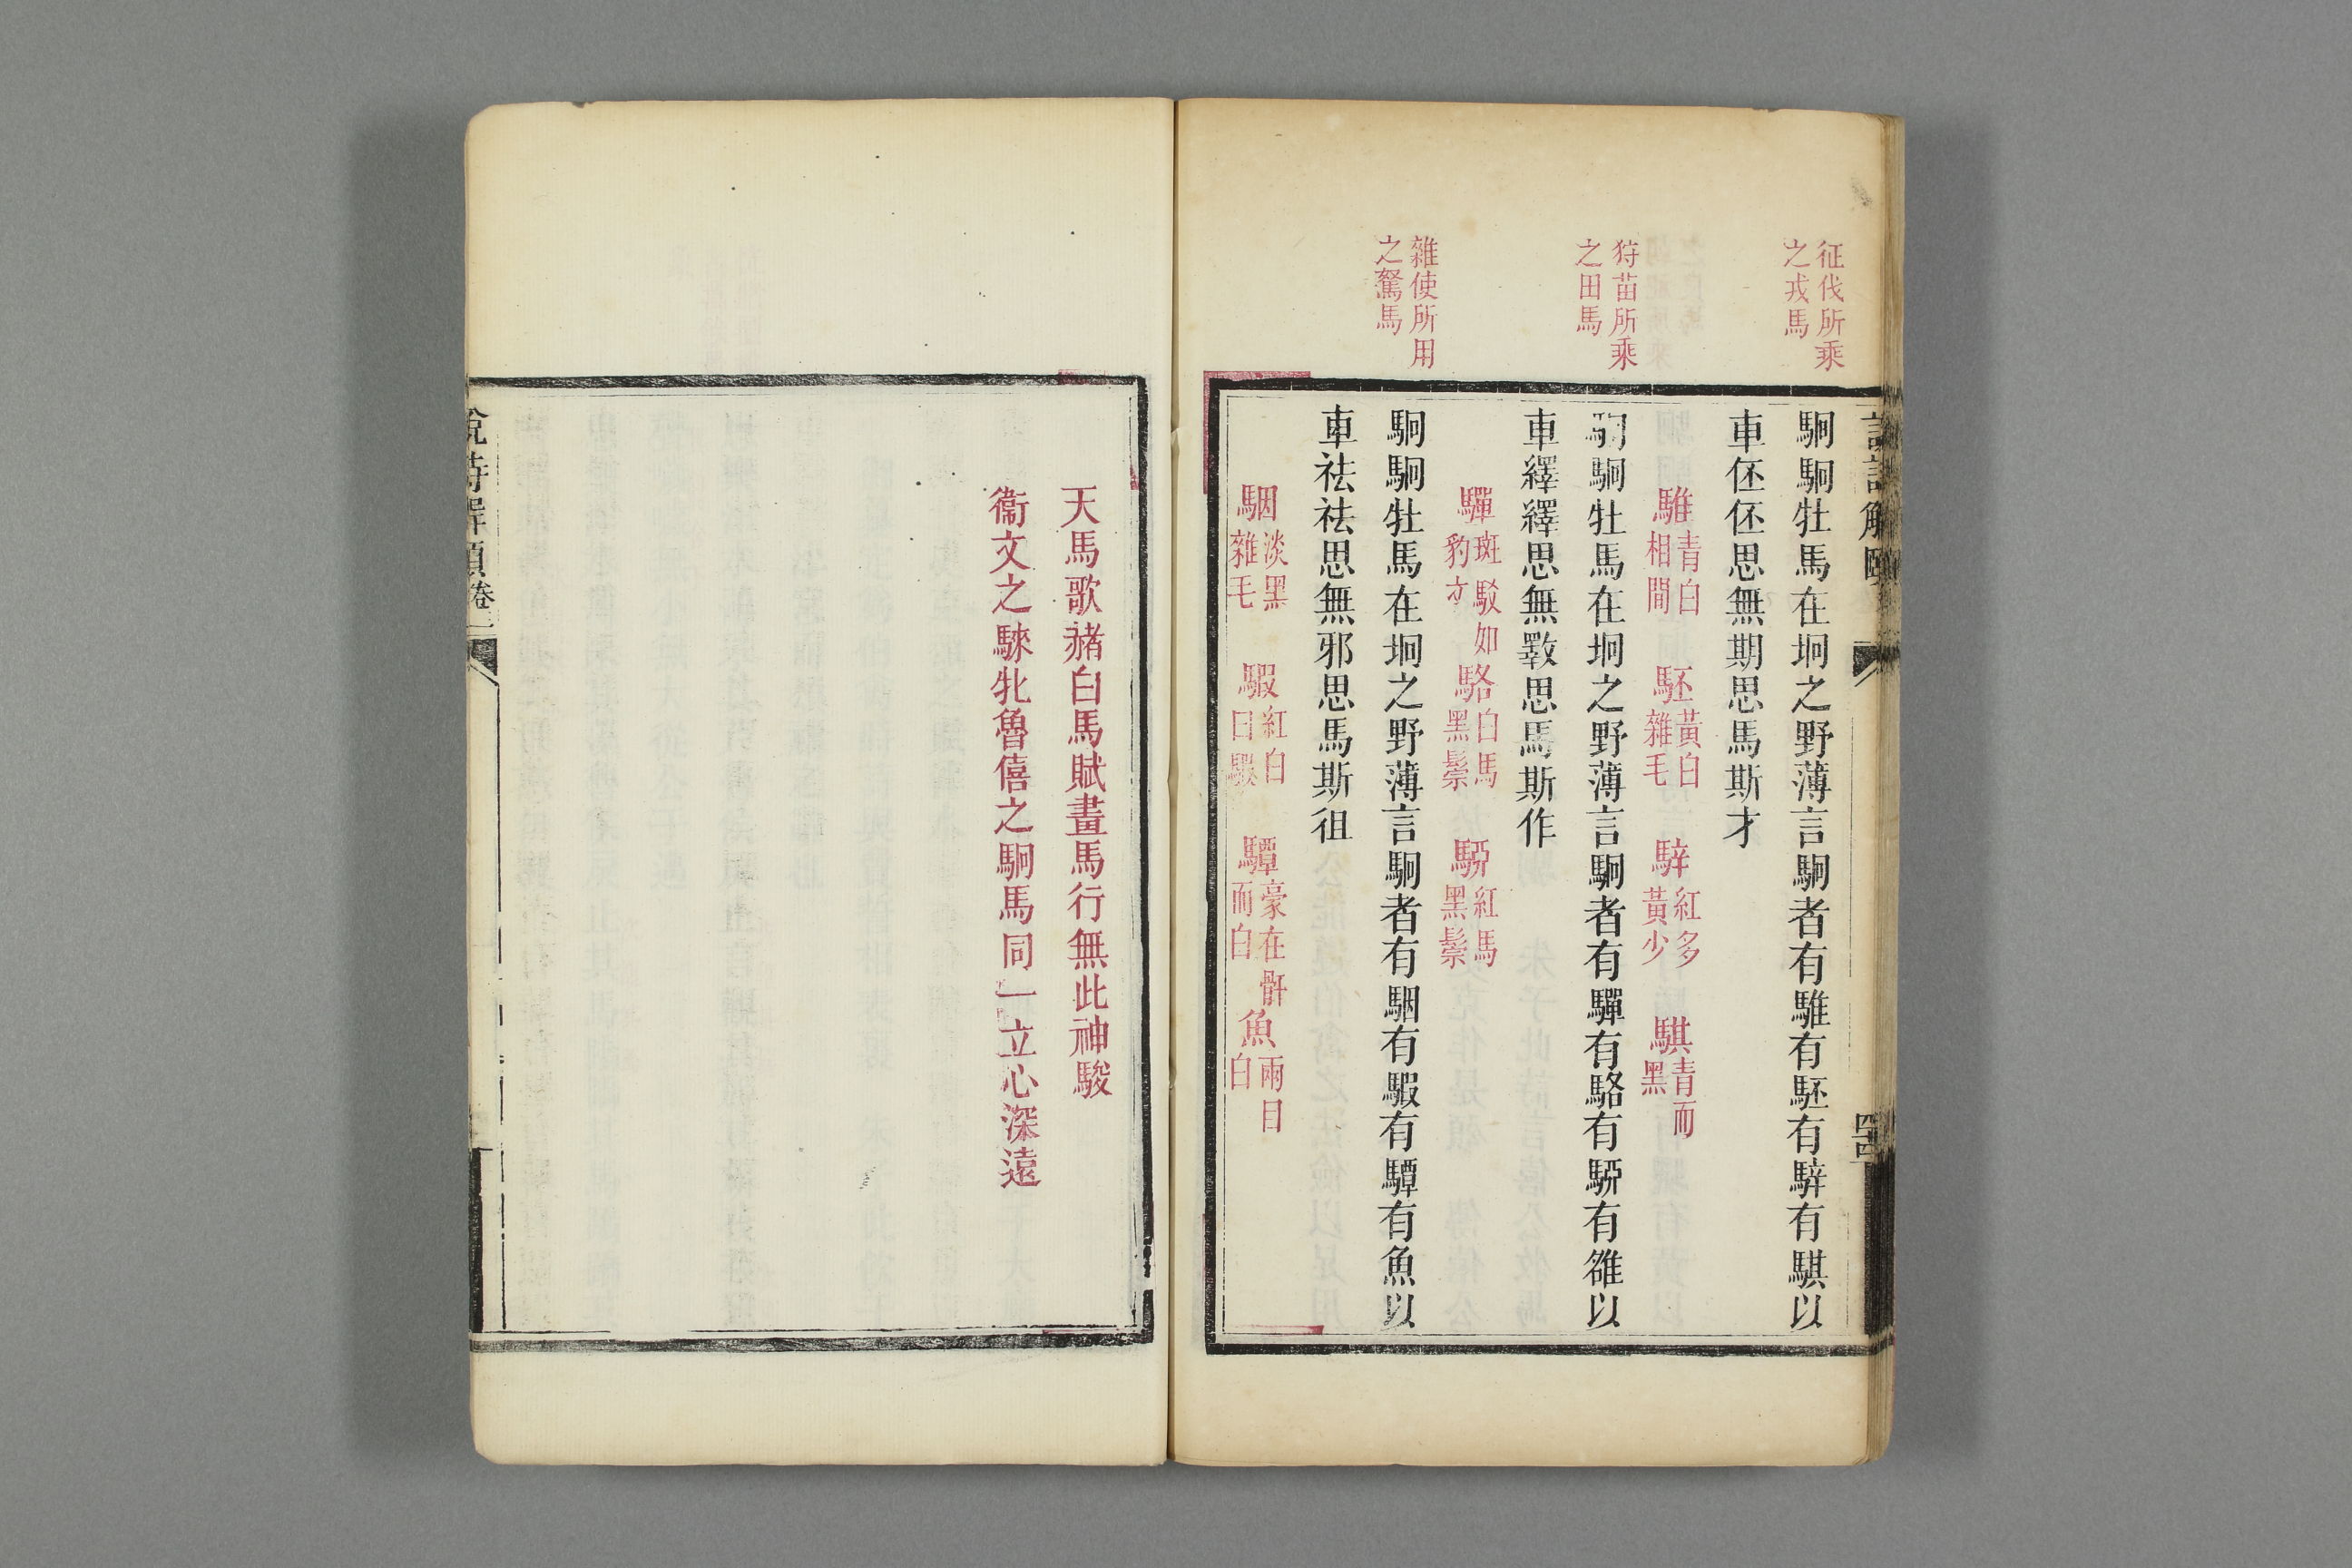 征伐所乘
之戎馬
狩苗所乘
之田馬
雜使所用
之駑馬
駉駉牡馬在坰之野薄言駉者有騅有駓有騂有騏以
車伾伾思無期思馬斯才
騅青白相間 駓黃白雜毛 騂紅多黃少 騏青而黑
駉駉牡馬在坰之野薄言駉者有驒有駱有騢有雒以
車繹繹思無斁思馬斯作
驒斑駁如豹文 駱白馬黑鬃 紅馬黑鬃
駉駉牡馬在坰之野薄言駉者有駰有騢有驔有魚以
車祛祛思無邪思馬斯徂
駰淡黑雜毛 騢紅白曰騢 驔豪在骭而白 魚兩目白
四十四
天馬歌赭白馬賦畫馬行無此神駿
衞文之騋牝魯僖之駉馬同一立心深遠
說詩解頤卷二